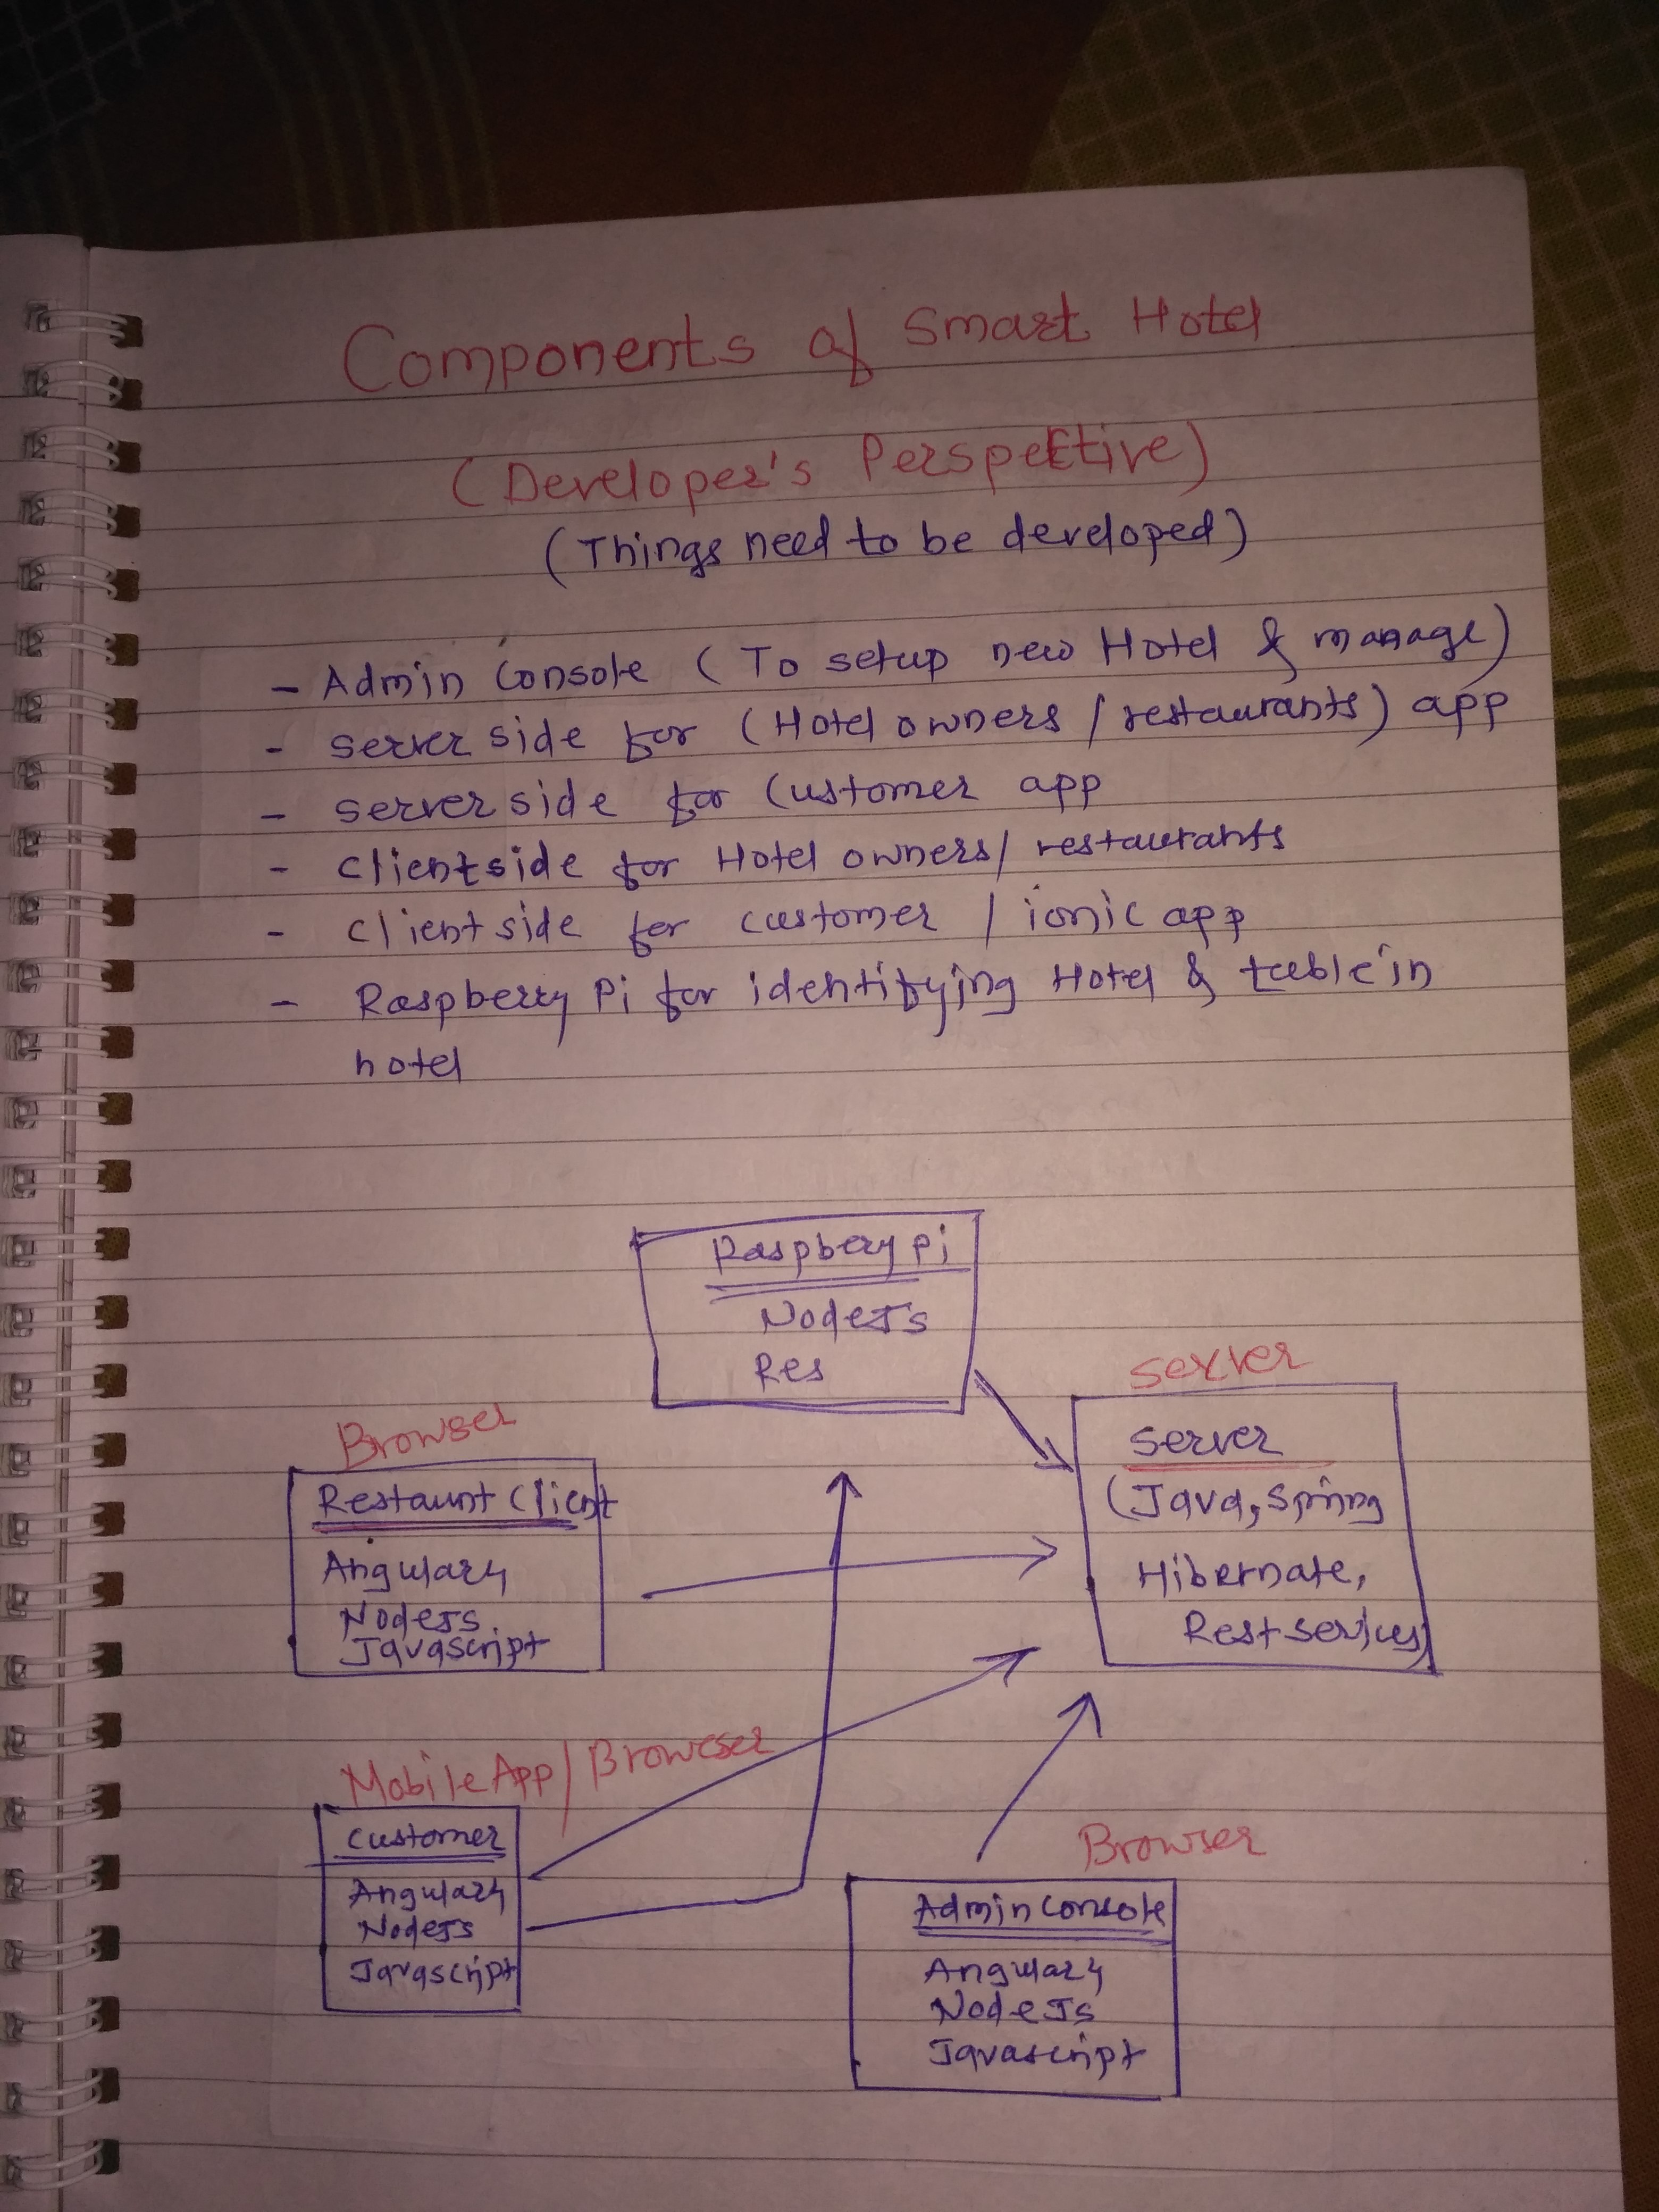 Components of Smart Hotel
(Developer's Perspective)
(Things need to be developed)
- Admin Console ( To setup new Hotel & manage)
- server side for (Hotel owners / restaurants) app
- server side for Customer app
- clientside for Hotel owners/ restaurants
- client side for customer / ionic app
- Raspberry Pi for identifying Hotel & table in
hotel
Raspbery Pi
NodeJs
Res
Server
Server
(Java, Spring
Hibernate,
Rest services)
Browser
Restaunt Client
Angular4
NodeJs
Javascript
Mobile App / Browser
Customer
Angular4
NodeJs
Javascript
Browser
Admin Console
Angular4
NodeJs
Javascript